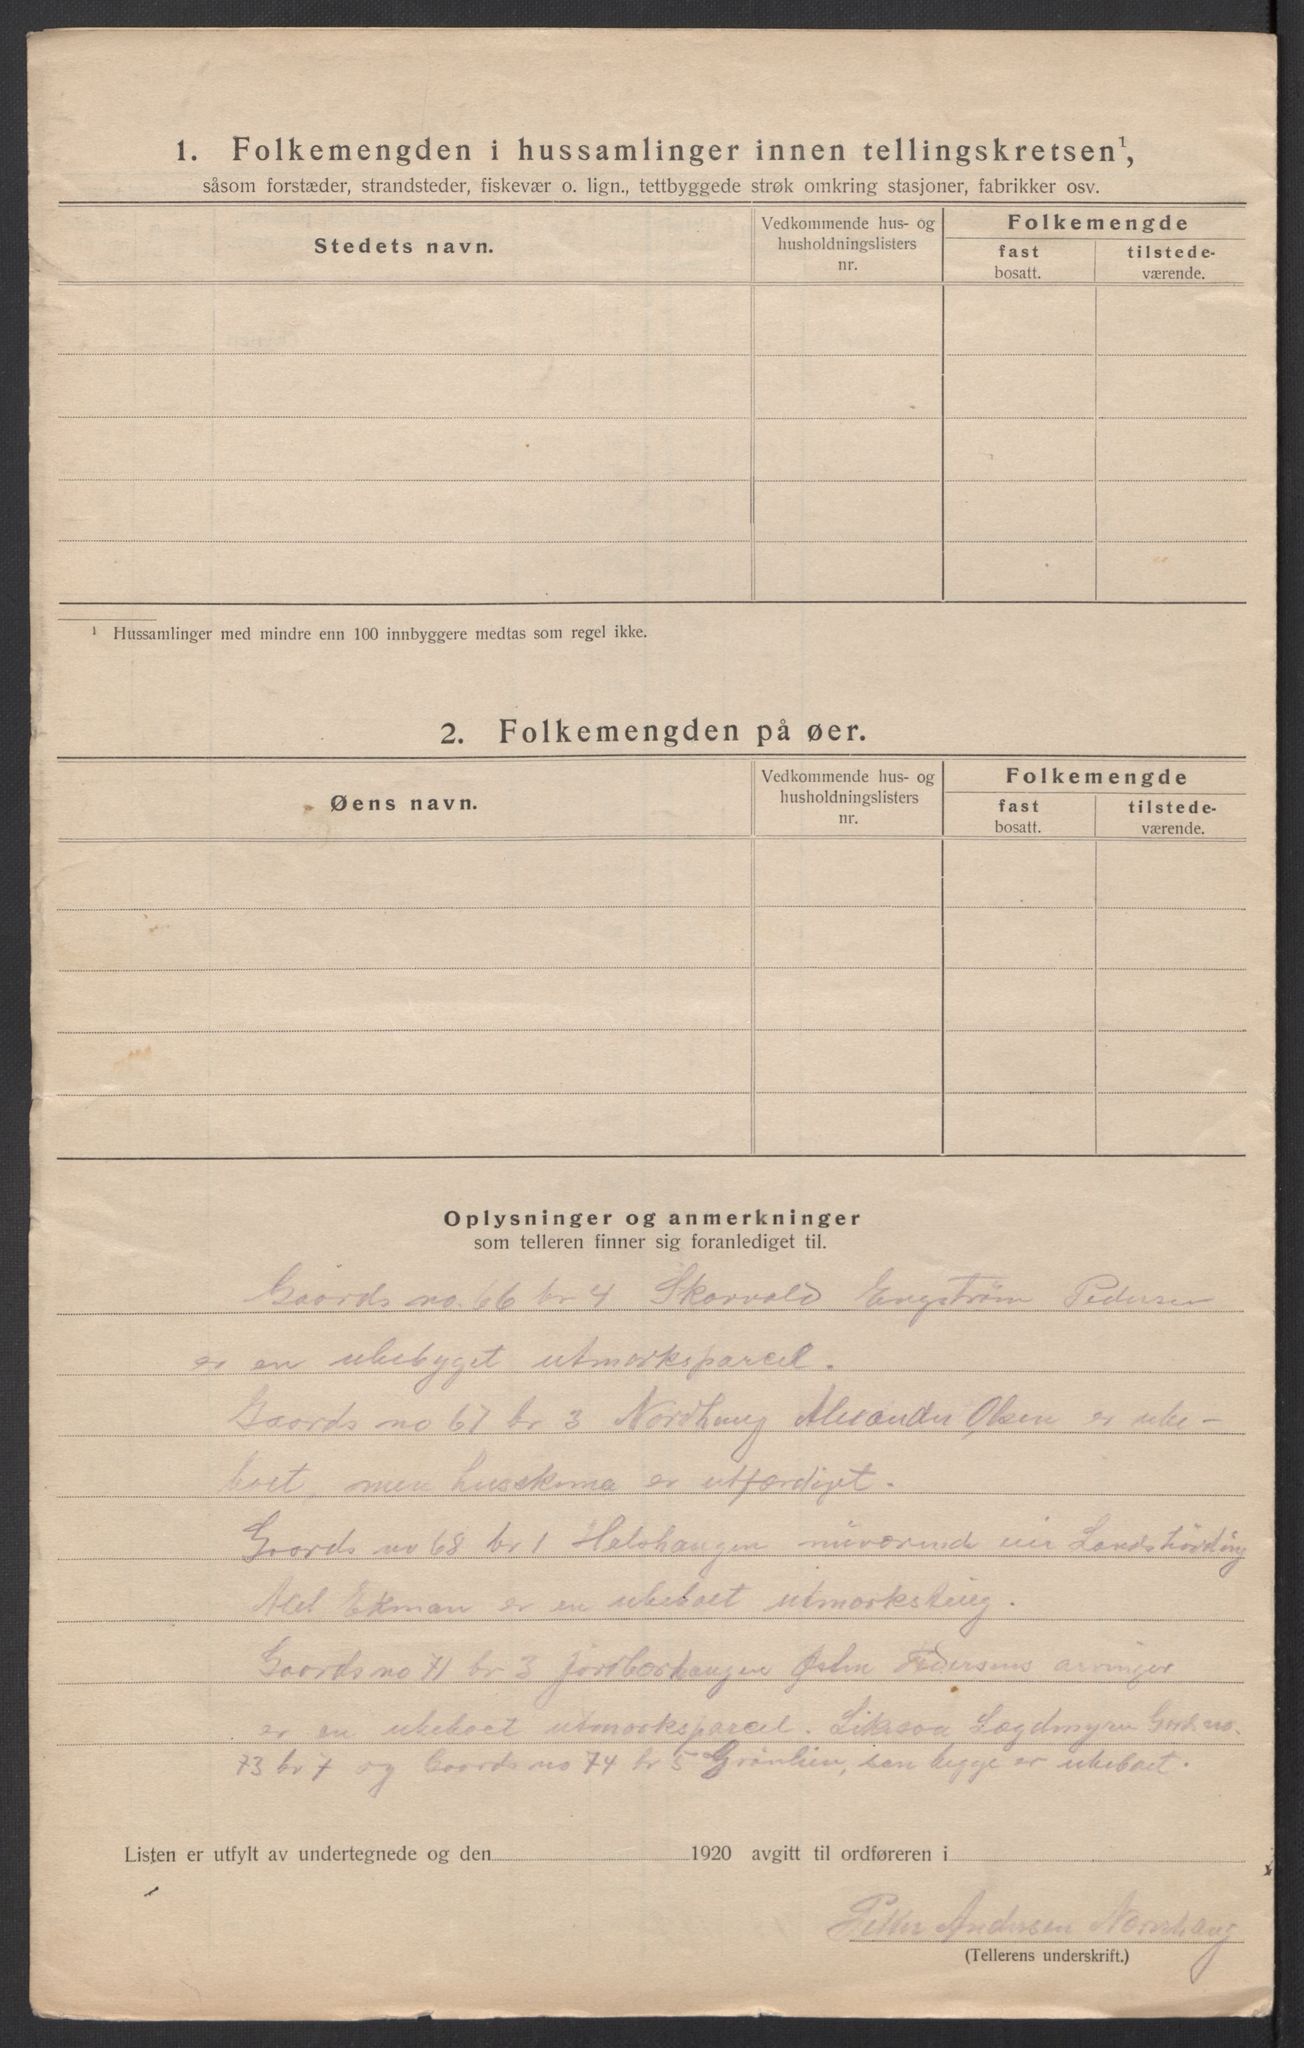 1. Folkemengden i hussamlinger innen tellingskretsen¹,
såsom forstæder, strandsteder, fiskevær o. lign., tettbyggede strøk omkring stasjoner, fabrikker osv.
Stedets navn.
Vedkommende hus- og
husholdningslisters
nr.
Folkemengde
fast
bosatt.
tilstede-
værende.
¹ Hussamlinger med mindre enn 100 innbyggere medtas som regel ikke.
2. Folkemengden på øer.
Øens navn.
Vedkommende hus- og
husholdningslisters
nr.
Folkemengde
fast
bosatt.
tilstede-
værende.
Oplysninger og anmerkninger
som telleren finner sig foranlediget til.
Gaards no. 66 br 4 Skarvold Engstrøm Pedersen
er en ubebyget utmarksparcel.
Gaards no 67 br 3 Nordhaug Alexander Olsen er ube-
boet, men husskema er utfærdiget.
Gaards no 68 br 1 nuværende eier Landshövding
Ekman er en ubeboet utmarksteig.
Gaards no 71 br 3 Jordbærhaugen Pedersens arvinger
er en ubeboet utmarksparcel. Likesaa Lægdmyren Gards no.
73 br 7 og Gaards no 74 br 5 Grønlien, som begge er ubeboet.
Listen er utfylt av undertegnede og den 1920 avgitt til ordføreren i
Petter Andersen Norshaug
(Tellerens underskrift.)